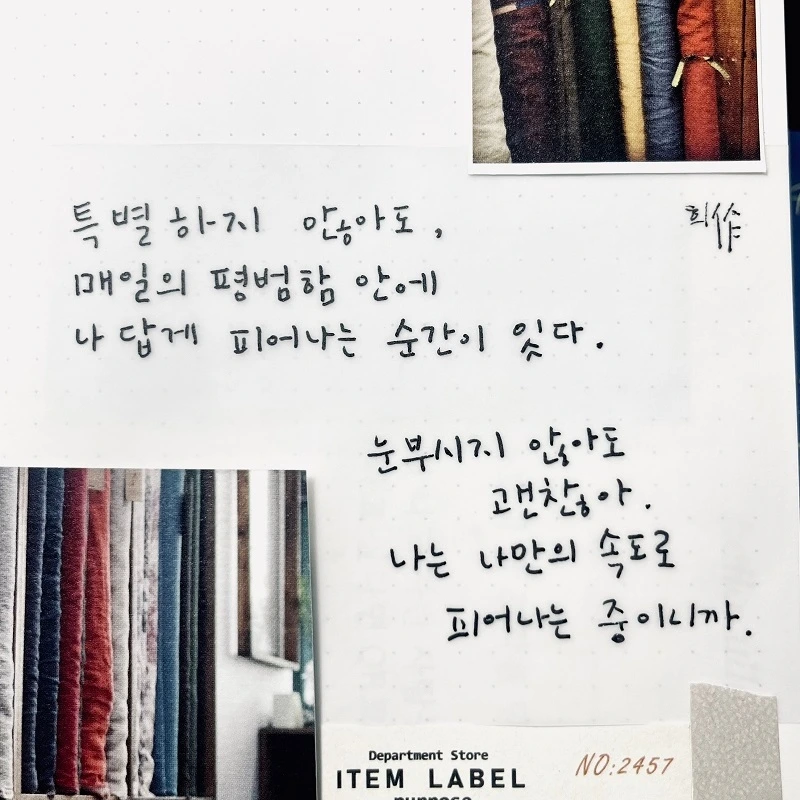 특별하지 않아도,
매일의 평범함 안에
나답게 피어나는 순간이 있다.
눈부시지 않아도
괜찮아.
나는 나만의 속도로
피어나는 중이니까.
Department Store
ITEM LABEL
NO:2457